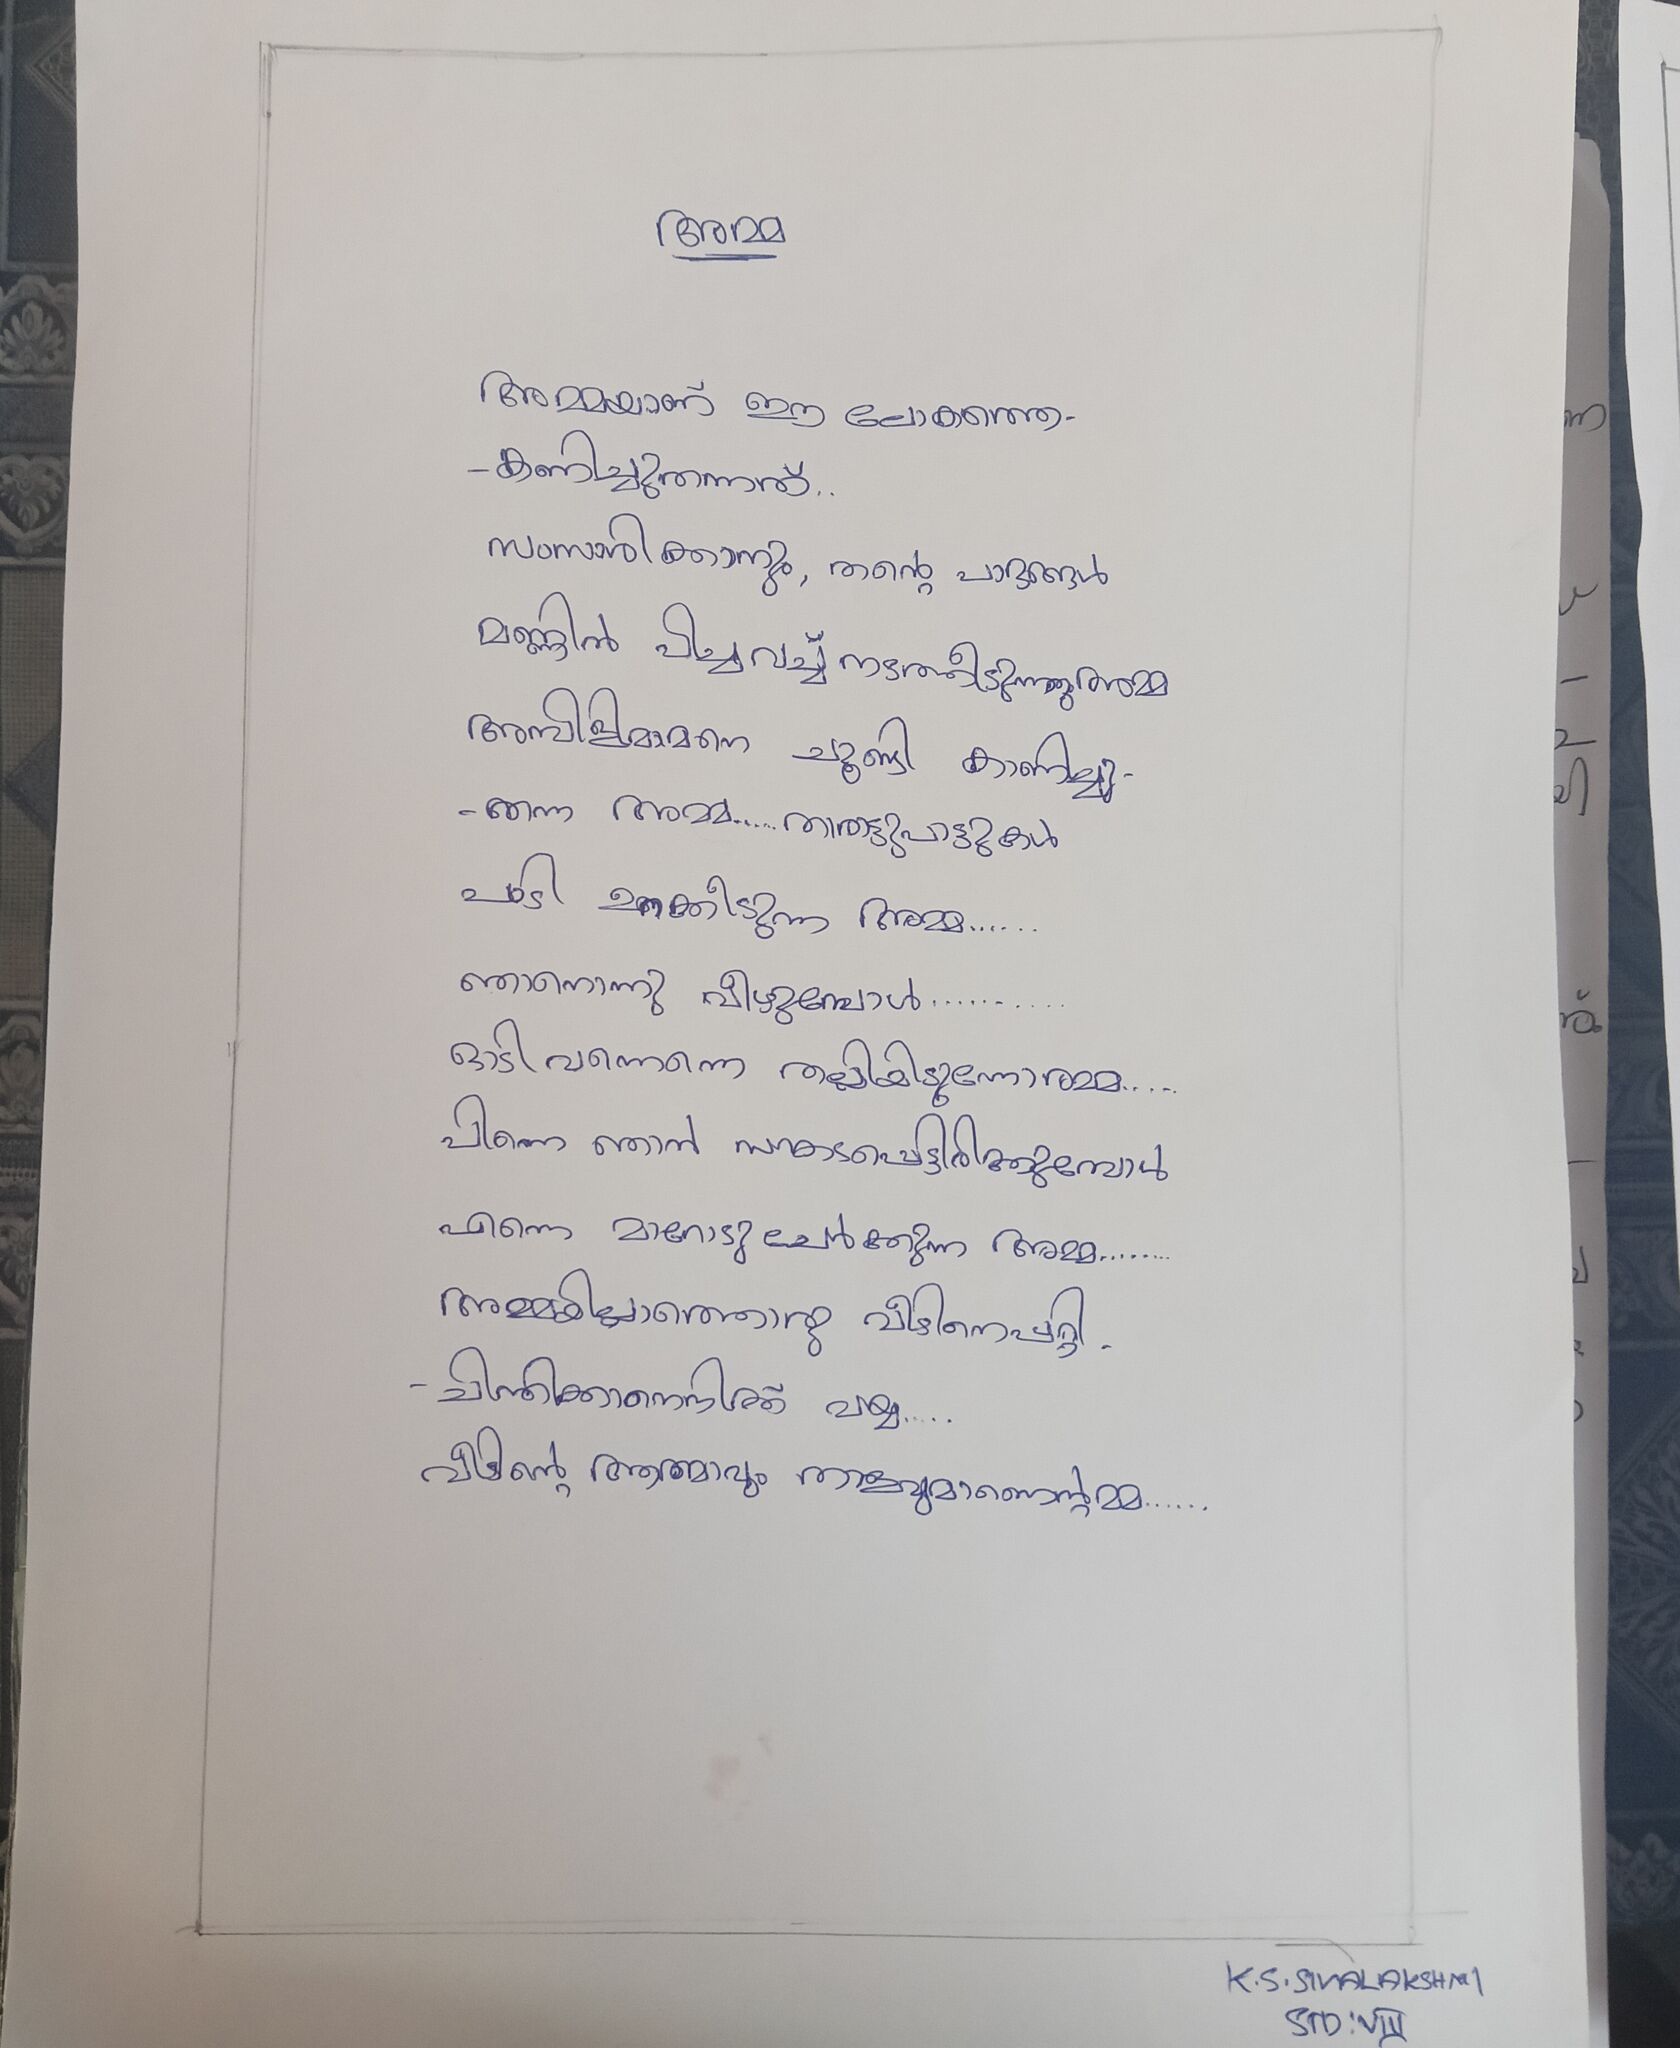 അമ്മ
അമ്മയാണ് ഈ ലോകത്തെ-
-കണിച്ചുതന്നത്..
സംസാരിക്കാനും, തന്റെ പാദങ്ങൾ
മണ്ണിൽ പിച്ചവച്ച് നടത്തീടുന്നുഅമ്മ
അമ്പിളിമാമനെ ചൂണ്ടി കാണിച്ചു-
-തന്ന അമ്മ.....താരാട്ടുപാട്ടുകൾ
പാടി ഉറക്കീടുന്ന അമ്മ......
ഞാനൊന്നു വീഴുമ്പോൾ..........
ഓടി വന്നെന്നെ തല്ലിയിടുന്നോരമ്മ.....
പിന്നെ ഞാൻ സങ്കടപ്പെട്ടിരിക്കുമ്പോൾ
എന്നെ മാറോടുചേർക്കുന്ന അമ്മ........
അമ്മയില്ലാത്തൊരു വീട്ടിനെപ്പറ്റി-
-ചിന്തിക്കാനെനിക്ക് വയ്യ.....
വീടിന്റെ ആത്മാവും താളവുമാണെന്റമ്മ......
K.S.SIVALAKSHMI
STD:VIII